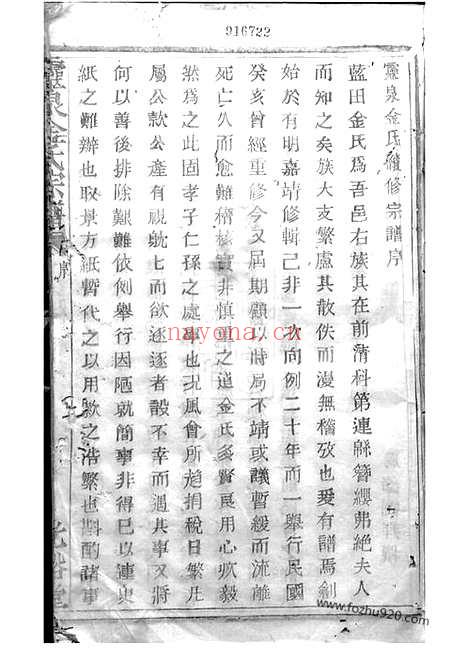 916722
靈泉金氏續修宗譜序
藍田金氏爲吾邑右族其在前清科第連緜簪纓弗絕夫人
而知之矣族大支繁慮其散佚而漫無稽攷也爰有譜焉創
始於有明嘉靖修輯已非一次向例二十年而一舉行民國
癸亥曾經重修今又屆期顧以時局不靖或議暫緩而流離
死亡久而愈難稽核實非愼重之道金氏 賢良用心 毅
然爲之此固孝子仁孫之處事也況風會所趨捐稅日繁凡
屬公款公產有視眈七而欲逐逐者設不幸而遇其事又將
何以善後排除艱難依例舉行因陋就簡事非得已以連史
紙之難辦也取景方紙暫代之以用款之浩繁也斟酌諸事
靈泉金氏宗譜
序
光裕堂
nayona.cn
www.fozhu920.com